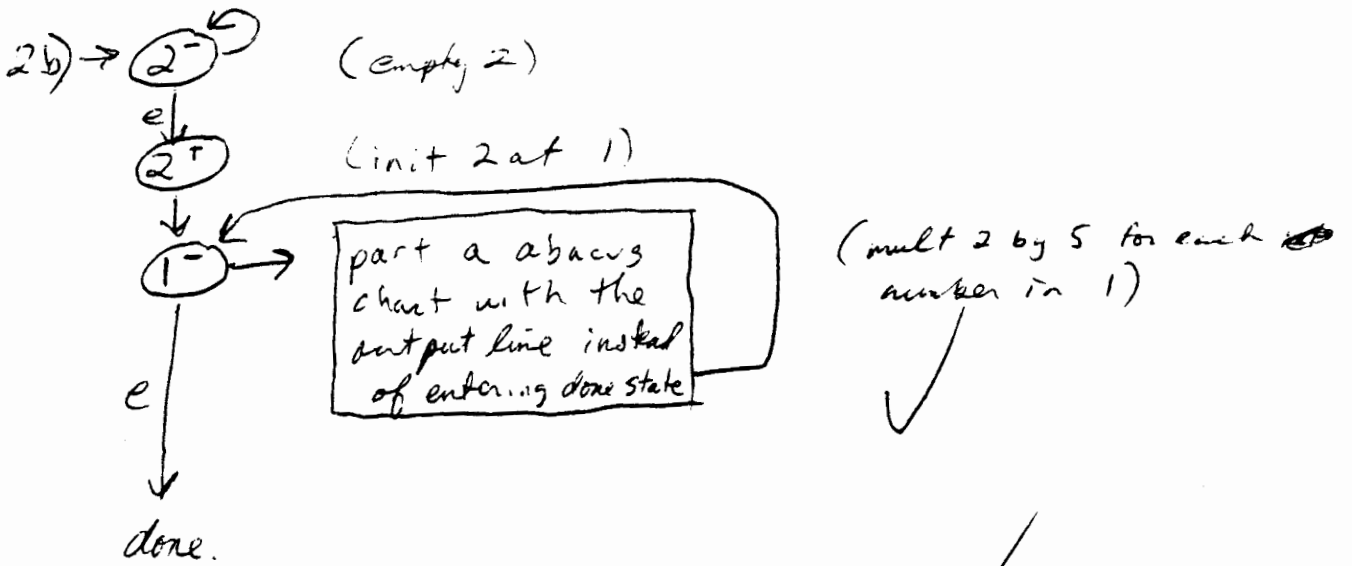 2b) → 2⁻ (empty 2)
e
2⁺ (init 2 at 1)
1⁻
part a abacus
chart with the
output line instead
of entering done state
(mult 2 by 5 for each
number in 1)
e
done.